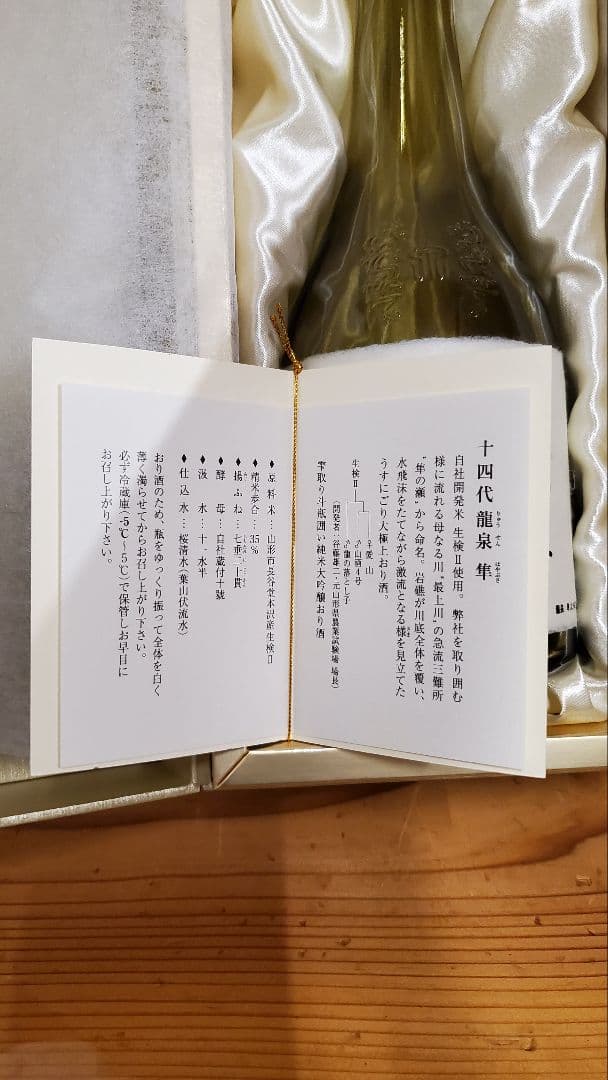 十四代龍泉 隼
りゅう せん はやぶさ
自社開発米 生検Ⅱ使用。弊社を取り囲む
様に流れる母なる川“最上川”の急流三難所
“隼の瀬”から命名。岩礁が川底全体を覆い、
水飛沫をたてながら激流となる様を見立てた
うすにごり大極上おり酒。
生検Ⅱ
♀愛山
♂山酒4号
♂龍の落とし子
(開発者：谷藤雄二・元山形県農業試験場 場長)
雫取り斗瓶囲い純米大吟醸おり酒
♦原料米…山形市長谷堂本沢産生検Ⅱ
♦精米歩合…35%
♦揚ふね…七垂二十貫
♦酵母…自社蔵付十號
♦汲水…十一水半
♦仕込水…桜清水(葉山伏流水)
おり酒のため、瓶をゆっくり振って全体を白く
薄く濁らせてからお召し上がり下さい。
必ず冷蔵庫(-5℃～5℃)で保管しお早目に
お召し上がり下さい。